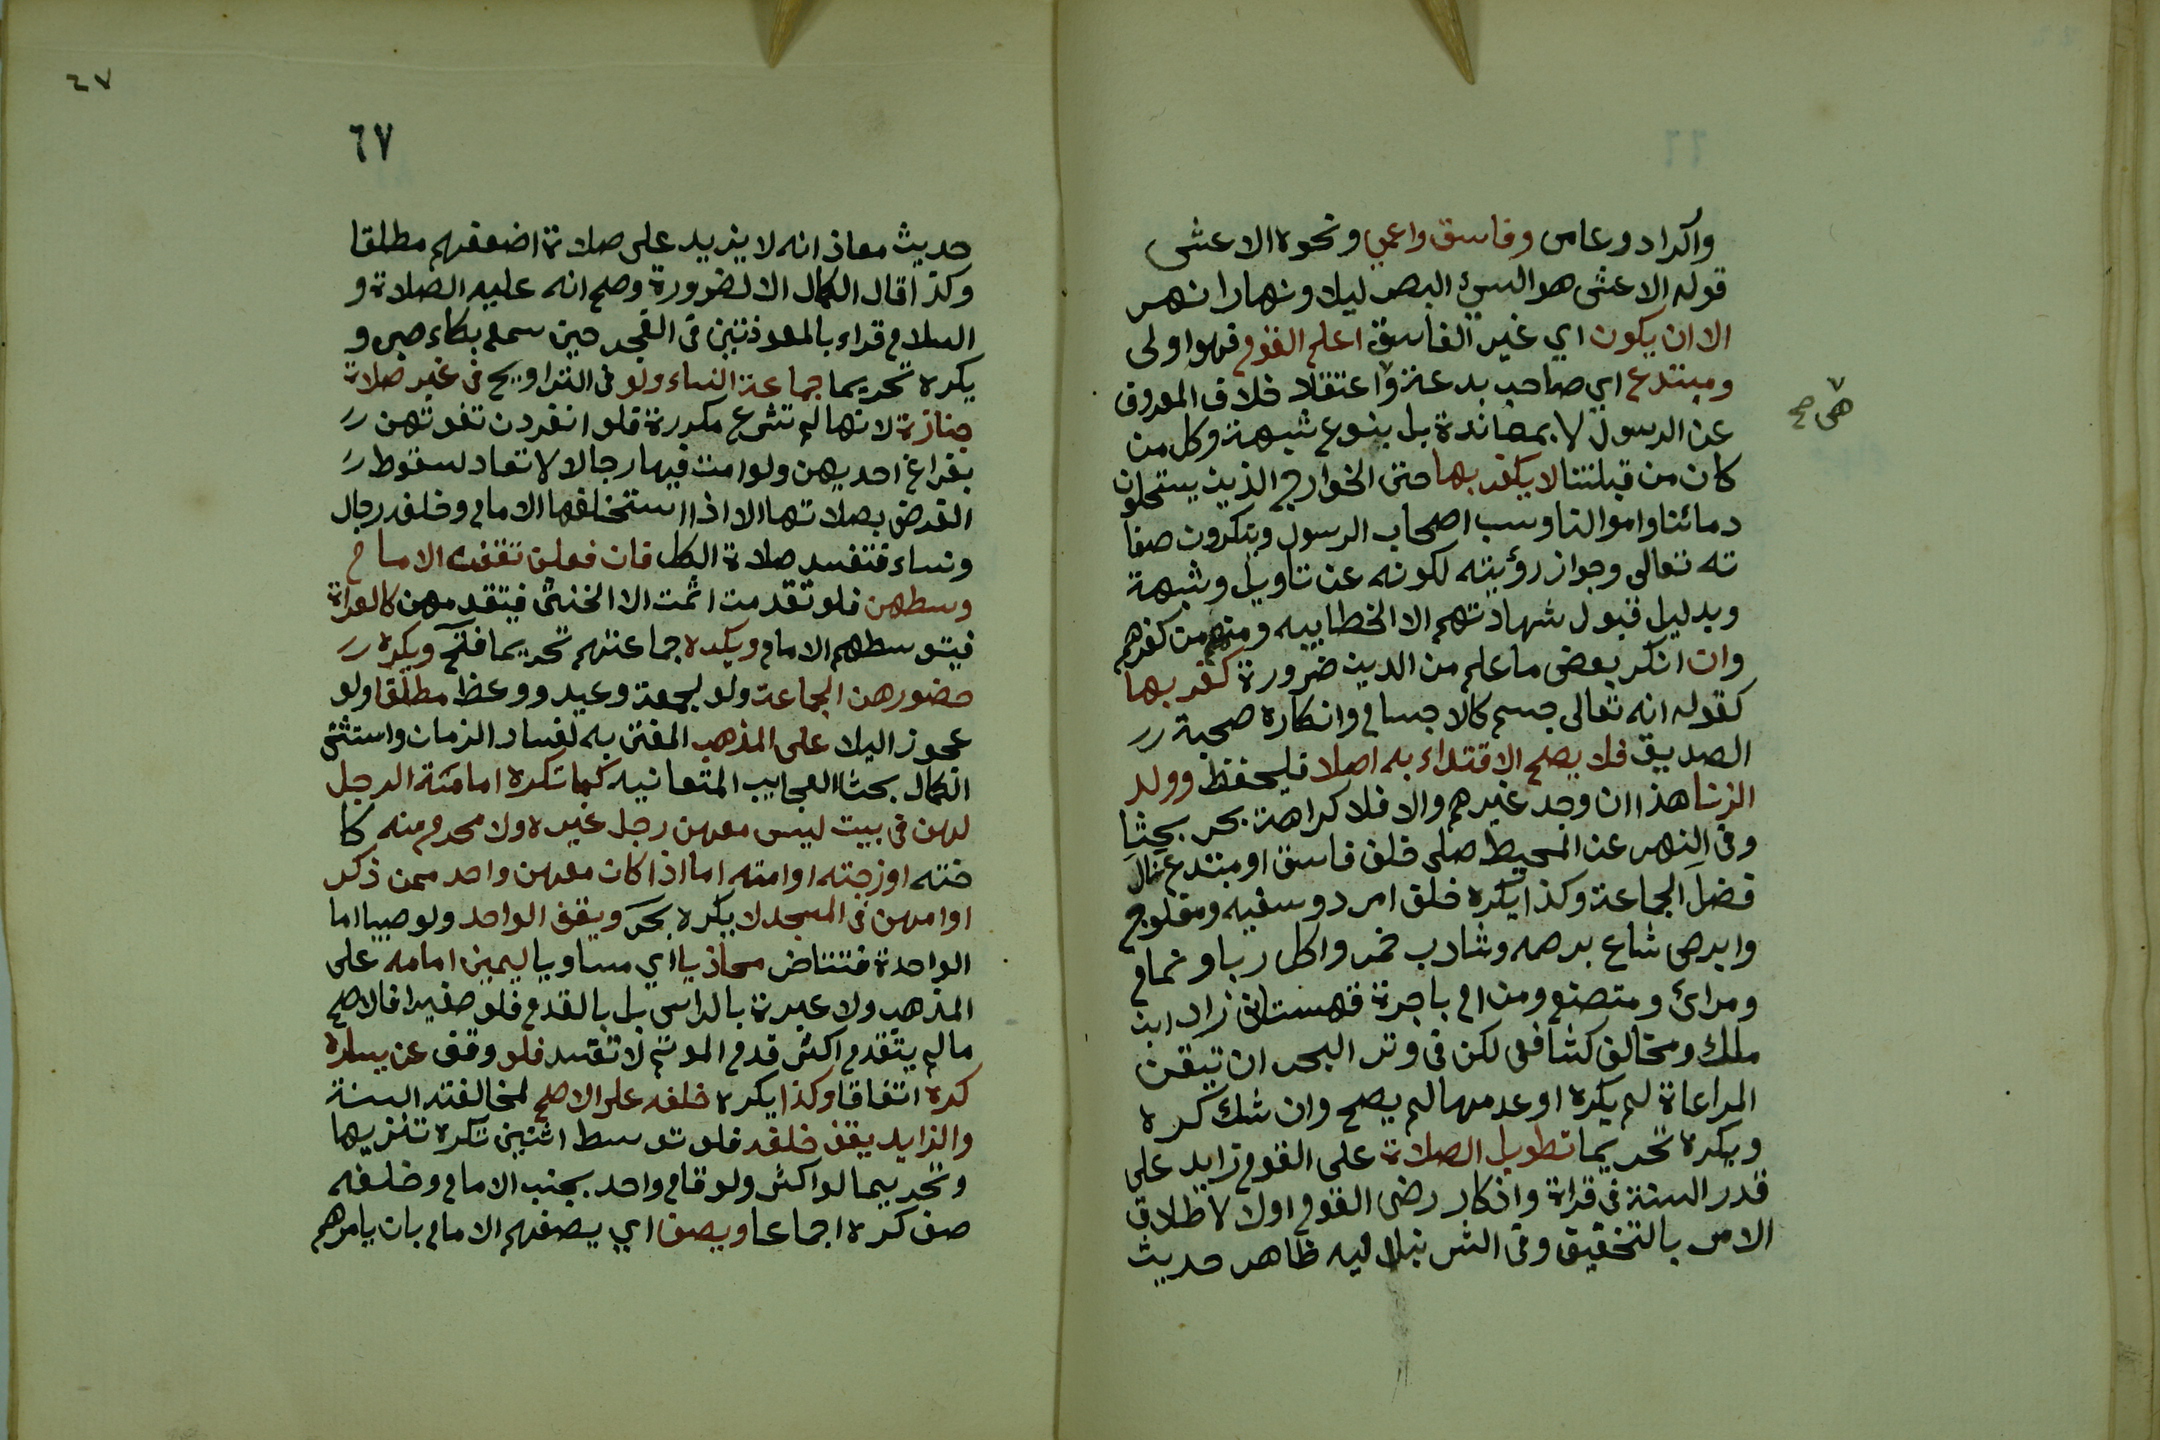 واكراد وعامى وفاسق واعمى ونحوه الاعشى
قوله الاعشى هو السيئ البصر ليلا ونهارا نهر
الا ان يكون اي غير الفاسق اعلم القوم فهو اولى
ومبتدع اي صاحب بدعة واعتقاد خلاف المعروف
هى صح
عن الرسول لا بمعاندة بل بنوع شبهة وكل من
كان من قبلتنا لا يكفر بها حتى الخوارج الذين يستحلون
دمائنا واموالنا وسب اصحاب الرسول وينكرون صفا
ته تعالى وجواز رؤيته لكونه عن تاويل وشبهة
وبدليل قبول شهادتهم الا الخطابيه ومنهم من كفرهم
وان انكر بعض ما علم من الدين ضرورة كفر بها
كقوله انه تعالى جسم كالاجسام وانكاره صحبة
الصديق فلا يصح الاقتداء به اصلا فليحفظ وولد
الزنا هذا ان وجد غيرهم والا فلا كراهة بحر بحثا
وفى النهر عن المحيط صلى خلف فاسق او مبتدع نال
فضل الجماعة وكذا يكره خلف امرد وسفيه ومفلوج
وابرص شاع برصه وشارب خمر واكل ربا ونمام
ومرائ ومتصنع ومن ام باجرة قهستانى زاد ابن
ملك ومخالف كشافعى لكن فى وتر البحر ان تيقن
المراعاة لم يكره او عدمها لم يصح وان شك كره
ويكره تحريما تطويل الصلاة على القوم زايد على
قدر السنة فى قراة واذكار رضى القوم اولا لاطلاق
الامر بالتخفيق وفى الشرنبلاليه ظاهر حديث
٦٧
٦٧
حديث معاذ انه لا يزيد على صلاة اضعفهم مطلقا
وكذا قال الكمال الا لضرورة وصح انه عليه الصلاة و
السلام قراء بالمعوذتين فى الفجر حين سمع بكاء صبى و
يكره تحريما جماعة النساء ولو فى التراويح فى غير صلاة
جنازة لانها لم تشرع مكررة فلو انفردن تفوتهن
بفراغ احديهن ولو امت فيها رجالا لا تعاد لسقوط
الفرض بصلاتها الا اذا استخلفها الامام وخلفه رجال
ونساء فتفسد صلاة الكل فان فعلن تقف الامام
وسطهن فلو تقدمت اثمت الا الخنثى فيتقدمهن كالعراة
فيتوسطهم الامام ويكره جماعتهم تحريما فتح ويكره
حضورهن الجماعة ولو لجمعة وعيد ووعظ مطلقا ولو
عجوز اليلا على المذهب المفتى به لفساد الزمان واستثنى
الكمال بحثا العجايب المتفانيه كما تكره امامة الرجل
لهن فى بيت ليس معهن رجل غيره ولا محرم منه كا
خته او زجته او امته اما اذا كان معهن واحد ممن ذكر
او امهن فى المسجد لا يكره بحر ويقف الواحد ولو صبيا اما
الواحدة فتتاخر محاذيا اي مساويا ليمين امامه على
المذهب ولا عبرة بالراس بل بالقدم فلو صغيرا فالاصح
ما لم يتقدم اكثر قدم الموتم لا تفسد فلو وقف عن يساره
كره اتفاقا وكذا يكره خلفه على الاصح لمخالفته السنة
والزايد يقف خلفه فلو توسط اثنين تكره تنزيها
وتحريما لو اكثر ولو قام واحد بجنب الامام وخلفه
صف كره اجماعا ويصف اي يصفهم الامام بان يامرهم